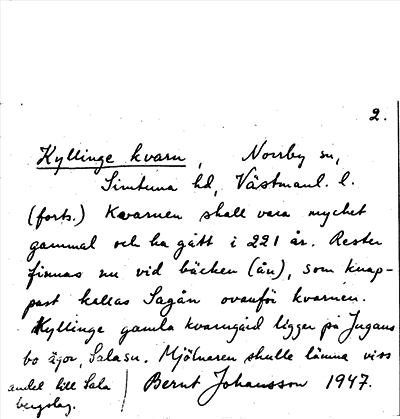 2.
Kyllinge kvarn, Norrby sn,
Simtuna hd, Västmanl. l.
(forts.) Kvarnen skall vara mycket
gammal och ha gått i 221 år. Rester
finnas nu vid bäcken (ån), som knap-
past kallas Sagån ovanför kvarnen.
Kyllinge gamla kvarngård ligger på Jugans
bo ägor, Sala sn. Mjölnaren skulle lämna viss
andel till Sala
bergslag.
Bernt Johansson 1947.